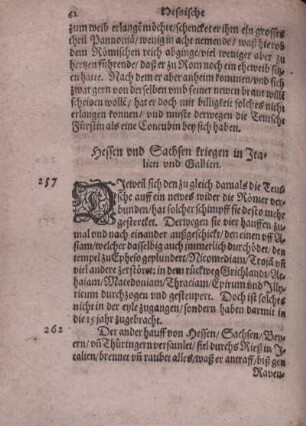 62 Hessische
zum weib erlangt möchte/schencket er ihm ein grosses
theil Pannoniæ/wenig in acht nemende/ waß hie vō
dem Römischen reich abginge/viel weniger aber zu
hertzen führende/ daß er zu Rom noch ein eheweib sitz-
en hatte. Nach dem er aber anheim kommen/vnd sich
zwar gern von derselben vmb seiner newen braut will
scheiden wolte/ hat er doch mit billigkeit solches nicht
erlangen können/ vnd muste derwegen die Teutsche
Fürstin als eine Concubin bey sich haben.
Hessen vnd Sachsen kriegen in Ita-
lien vnd Gallien.
257 DIeweil sich den zu gleich damals die Teut-
sche auff ein newes wider die Römer ver-
bunden/hat solcher schimpff sie desto mehr
gestercket. Derwegen sie vier hauffen zu-
mal vnd nach einander außgeschickt/den einen vff A-
siam/welcher dasselbig auch jmmerlich durchödet/den
tempel zu Epheso geplundert/Nicomediam/Trojā vñ
viel andere zerstöret: in dem rückweg Grichlandt/A-
chaiam/Macedoniam/Thraciam/Epirum vnd Illy-
ricum durchzogen vnd gesteupert. Doch ist solches
nicht in der eyle zugangen/sondern haben darmit in
die 15 jahr zugebracht.
262 Der ander hauff von Hessen/Sachsen/Bey-
ern/vñ Thüringern versamlet/fiel durchs Rieß in J-
talien/brennet vñ raubet alles/waß er antraff/biß gen
Raven-